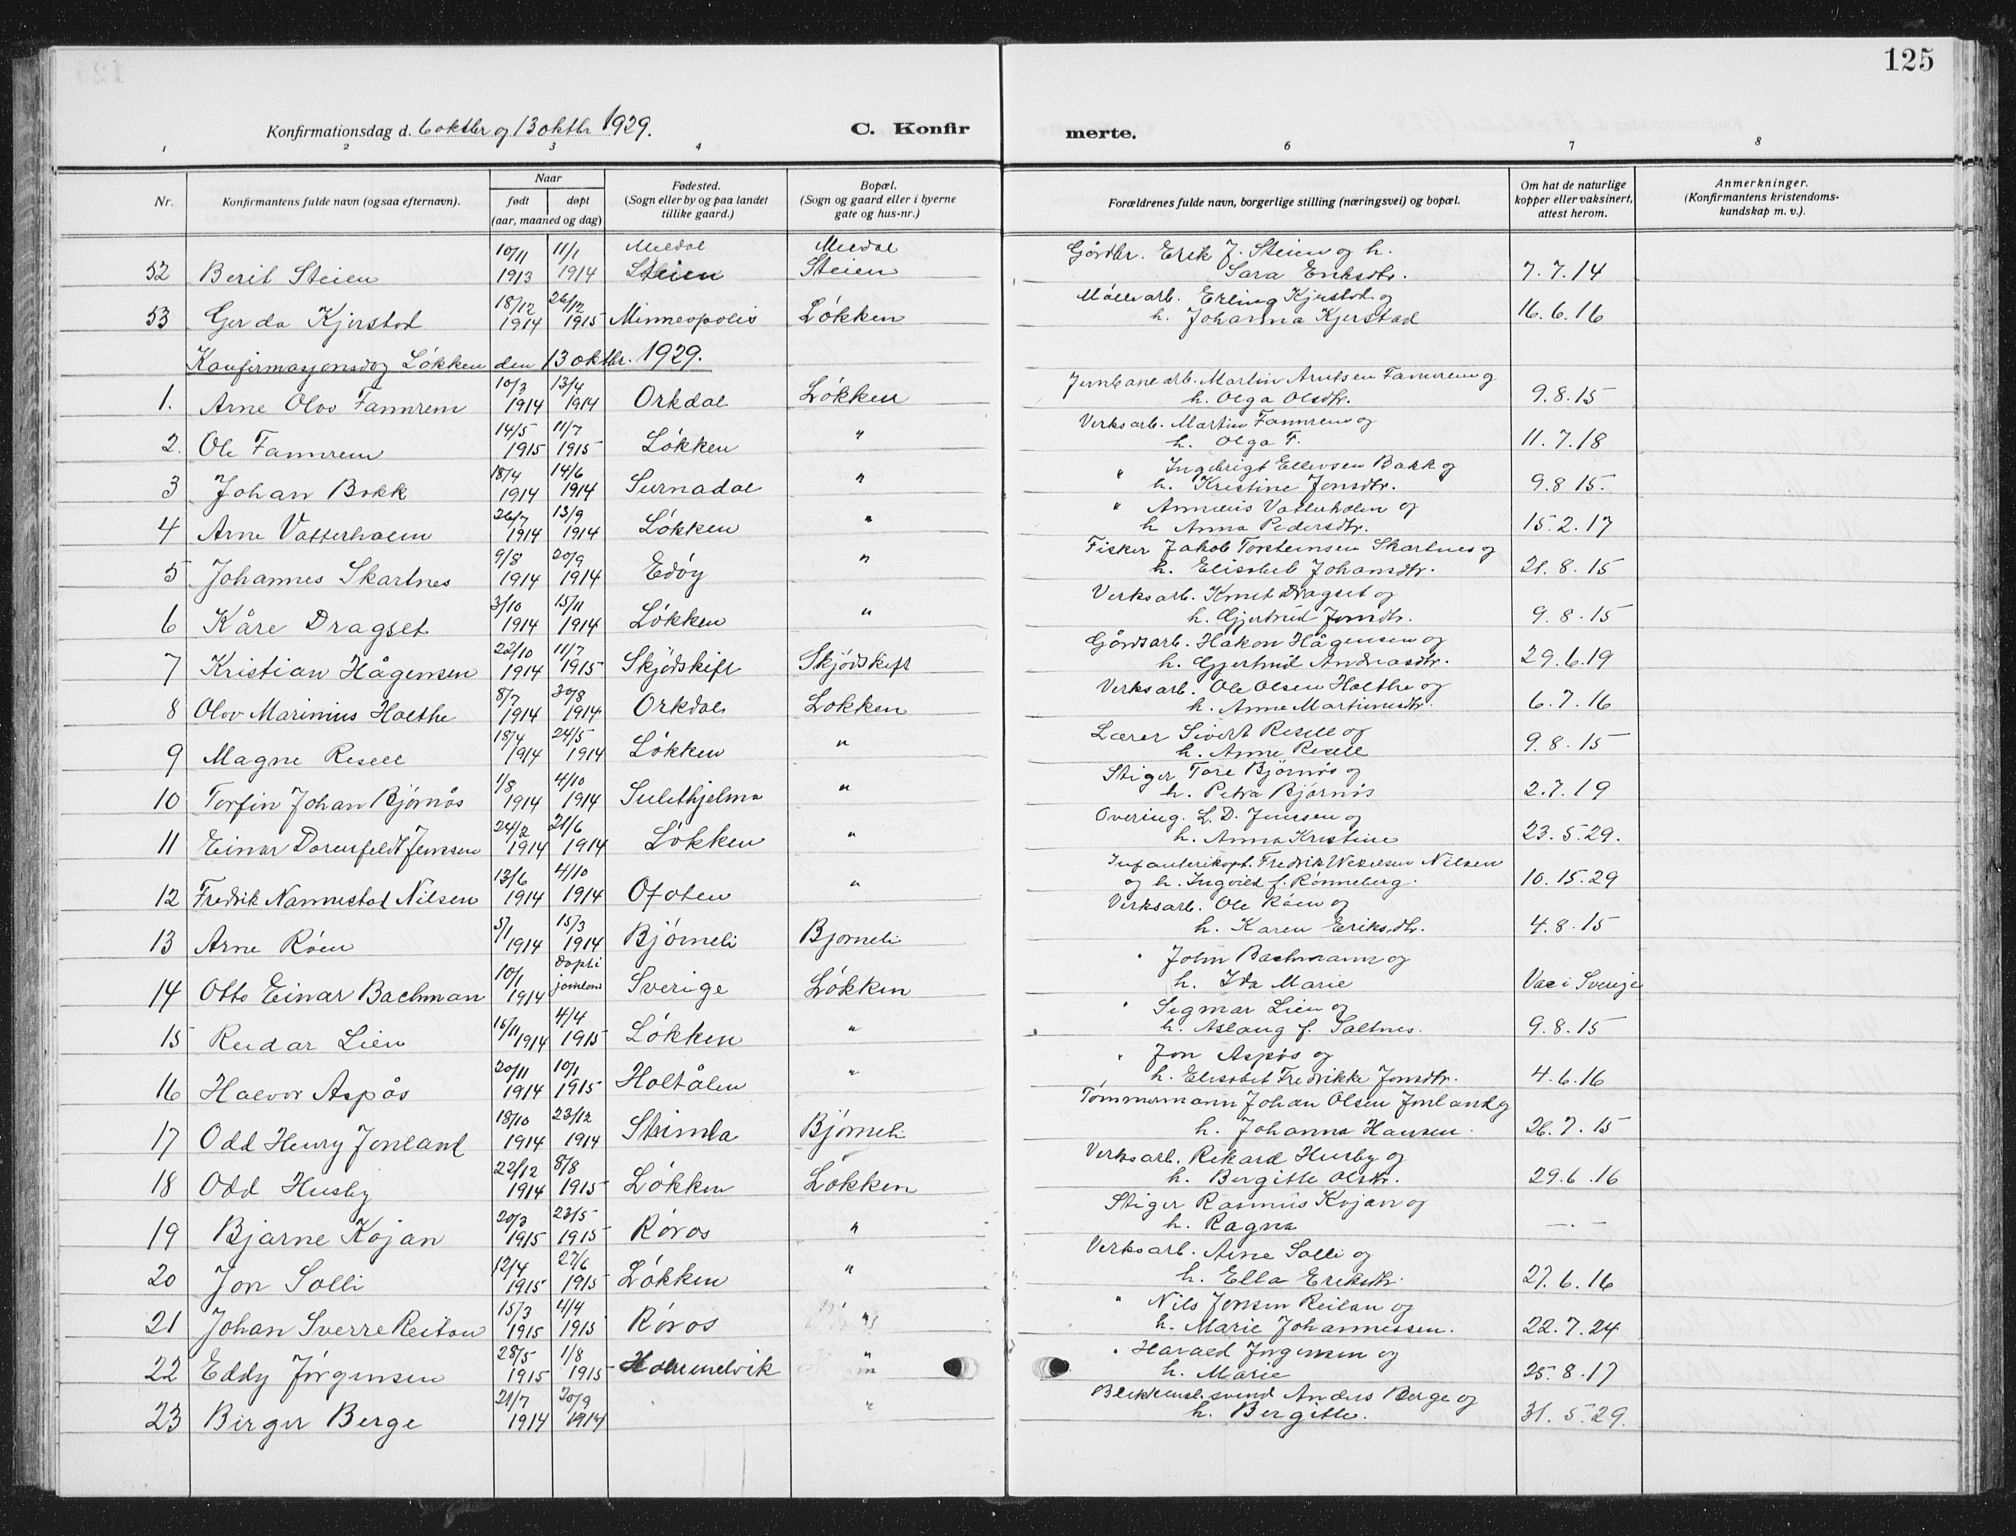 125
Konfirmationsdag d. 6 oktbr og 13 oktbr 1929.
C. Konfir
merte.
1 2 3 4 6 7 8
Nr.
Konfirmantens fulde navn (ogsaa efternavn).
Naar
født døpt
(aar, maaned og dag)
Fødested.
(Sogn eller by og paa landet
tillike gaard.)
Bopæl.
(Sogn og gaard eller i byerne
gate og hus-nr.)
Forældrenes fulde navn, borgerlige stilling (næringsvei) og bopæl.
Om hat de naturlige
kopper eller vaksinert,
attest herom.
Anmerkninger.
(Konfirmantens kristendoms-
kundskap m. v.).
10/11 11/1 Meldal Meldal Gårdbr. Erik J. Steien og h.
52 Berit Steien 1913 1914 Steien Steien Sara Eriksdtr. 7.7.14
18/12 26/12 Møllearb. Erling Kjerstad og
53 Gerda Kjerstad 1914 1915 Minneopolis Løkken h. Johanna Kjerstad 16.6.16
Konfirmasjonsdag Løkken den 13 oktbr. 1929.
10/3 13/4 Jernbanearb. Martin Arntsen Fannrem og
1. Arne Olav Fannrem 1914 1914 Orkdal Løkken h. Olga Olsdtr. 9.8.15
14/5 11/7 Verksarb. Martin Fannrem og
2. Ole Fannrem 1915 1915 Løkken " h. Olga F. 11.7.18
18/4 14/6 " Ingebrigt Ellevsen Bakk og
3 Johan Bakk 1914 1914 Surnadal " h. Kristine Jonsdtr. 9.8 15.
26/7 13/9 " Annæus Vatterholen og
4 Arne Vatterholm 1914 1914 Løkken " h Anna Pedersdtr. 15.2.17
9/8 20/9 Fisker Jakob Torsteinsen Skartnes og
5 Johannes Skartnes 1914 1914 Edøy " h. Elisabet Johansdtr. 21.8.15
3/10 15/11 Verksarb. Knut Dragset og
6 Kåre Dragset 1914 1914 Løkken " h. Gjertrud Jonsdtr. 9.8.15
22/10 11/7 Gårdsarb. Håkon Hågensen og
7 Kristian Hågensen 1914 1915 Skjødskift Skjødskift h. Gjertrud Andreasdtr. 29.6.19
8/7 30/8 Verksarb. Ole Olsen Holthe og
8 Olav Marinius Holthe 1914 1914 Orkdal Løkken h. Anne Martinusdtr. 6.7.16
18/4 24/5 Lærer Sivert Resell og
9 Magne Resell 1914 1914 Løkken " h. Anne Resell 9.8.15
1/8 4/10 Stiger Tore Bjørnås og
10 Torfin Johan Bjørnås 1914 1914 Sulithjelma " h. Petra Bjørnås 2.7.19
24/2 21/6 Overing. L. D. Jenssen og
11 Einar Dorenfeldt Jenssen 1914 1914 Løkken " h. Anna Kristine 23.5.29.
13/6 4/10 Infanterikapt. Fredrik Wesselsen Nilsen
12 Fredrik Nannestad Nilsen 1914 1914 Ofoten " og h. Ingvild f. Rønneberg. 10.15.29
5/1 15/3 Verksarb. Ole Røen og
13 Arne Røen 1914 1914 Bjørneli Bjørneli h. Karen Eriksdtr. 4.8.15
10/1 døpt i " John Bachmann og
14 Otto Einar Bachman 1914 Sverige Løkken h. Ida Marie Vac i Sverige
15/11 4/4 " Sigmar Lien og
15 Reidar Lien 1914 1915 Løkken " h. Aslaug f. Saltnes. 9.8.15
20/11 10/1 " Jon Aspås og
16 Halvor Aspås 1914 1915 Holtålen " h. Elisabet Fredrikke Jonsdtr. 4.6.16
18/10 23/12 Tømmermann Johan Olsen Jonland og
17 Odd Henry Jonland 1914 1914 Strinda Bjørneli h. Johanna Hansen. 26.7.15
22/12 8/8 Verksarb. Rikard Husby og
18 Odd Husby 1914 1915 Løkken Løkken h. Bergitte Olsdtr. 29.6.16
20/3 23/5 Stiger Rasmus Kojan og
19 Bjarne Kojan 1915 1915 Røros " h. Ragna —.—
12/4 27/6 Verksarb. Arne Solli og
20 Jon Solli 1915 1915 Løkken " h. Ella Eriksdtr. 27.6.16
15/3 4/4 " Nils Jensen Reitan og
21 Johan Sverre Reitan 1915 1915 Røros " h. Marie Johannessen. 22.7.24
28/5 1/8 " Harald Jørgensen og
22 Eddy Jørgensen 1915 1915 Hommelvik " h. Marie 25.8.17
21/7 20/9 Blikkensl. svend Anders Berge og
23 Birger Berge 1914 1914 " h. Bergitte. 31.5.29.